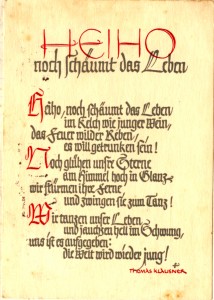 HEIHO
noch schäumt das Leben
Heiho, noch schäumt das Leben
im Kelch wie junger Wein,
das Feuer wilder Reben,
es will getrunken sein!
Noch glühen unsre Sterne
am Himmel hoch in Glanz
wir stürmen ihre Ferne
und zwingen sie zum Tanz!
Wir tanzen unser Leben
und jauchzen hell im Schwung,
uns ist es aufgegeben:
die Welt wird wieder jung!
THOMAS KLAUSNER